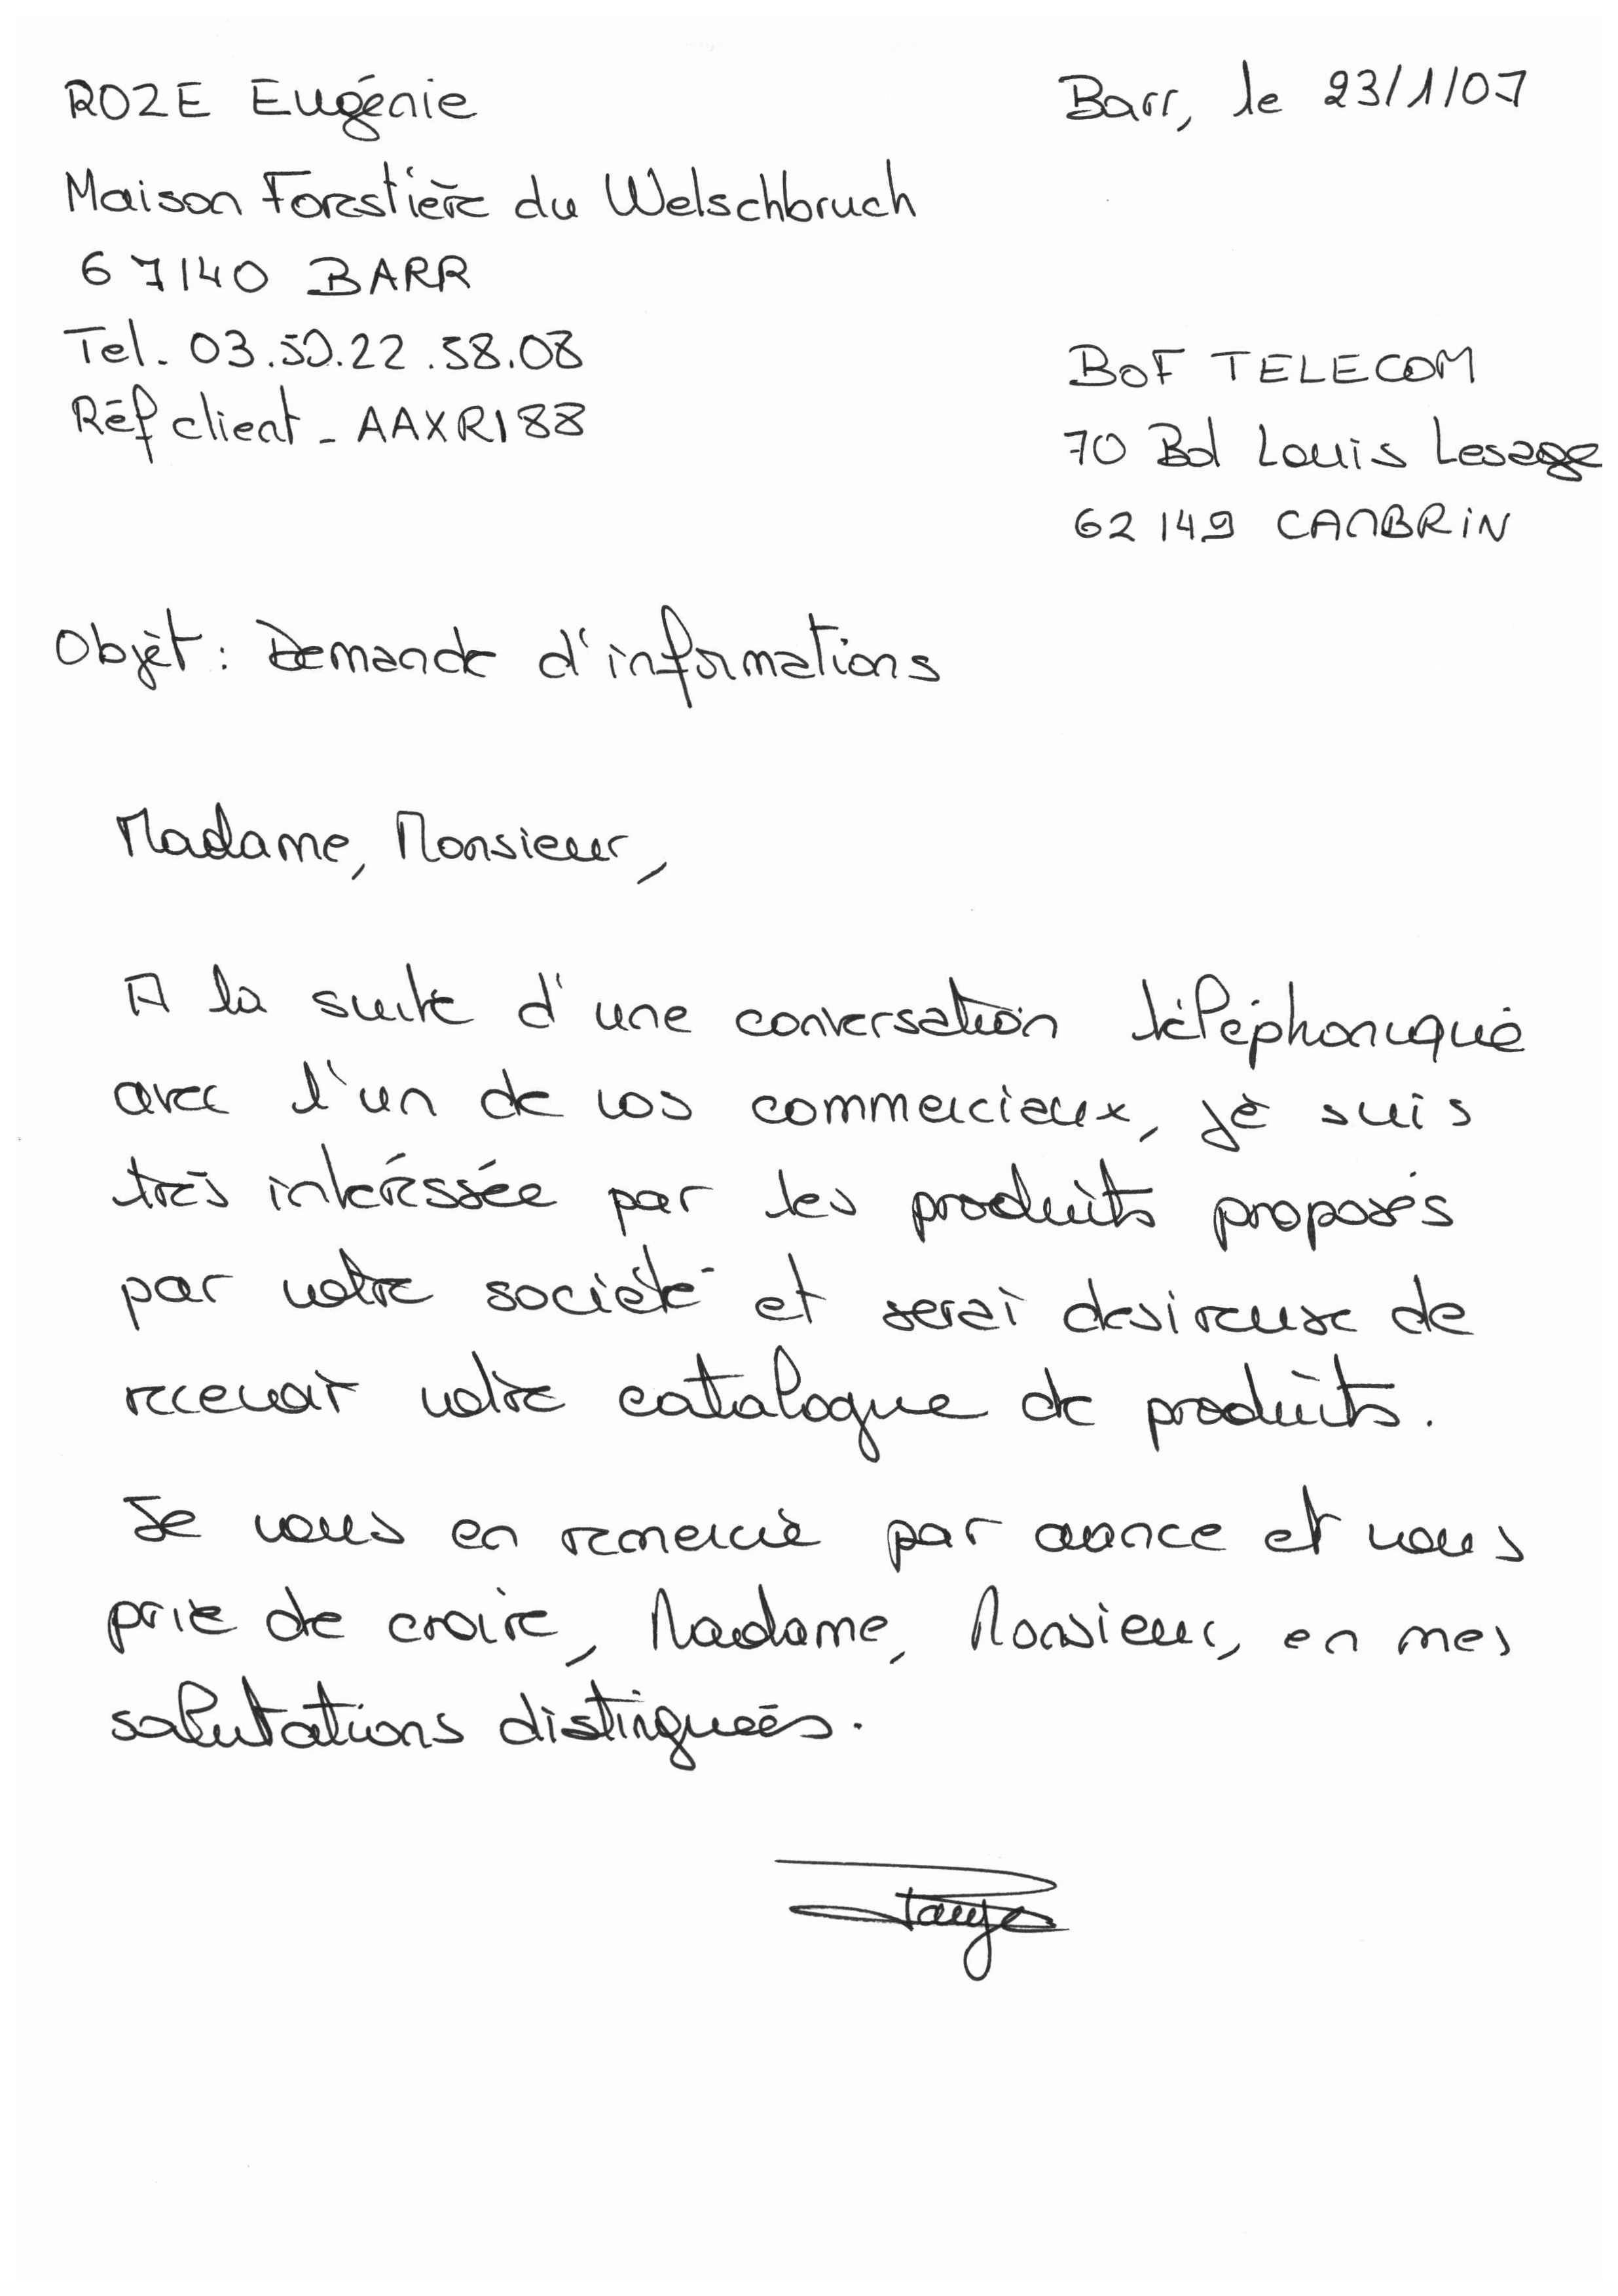 ROZE Eugénie
Barr, le 23/1/07
Maison Forestière du Welschbruch
67140 BARR
Tel. 03.50.22.58.08
Réf client - AAXR188
BOF TELECOM
70 Bd Louis Lesage
62149 CAMBRIN
Objet : Demande d'informations
Madame, Monsieur,
A la suite d'une conversation téléphonique
avec l'un de vos commerciaux, je suis
très intéréssée par les produits proposés
par votre société et serai desireuse de
recevoir votre catalogue de produits.
Je vous en remercie par avance et vous
prie de croire, Madame, Monsieur, en mes
salutations distinguées.